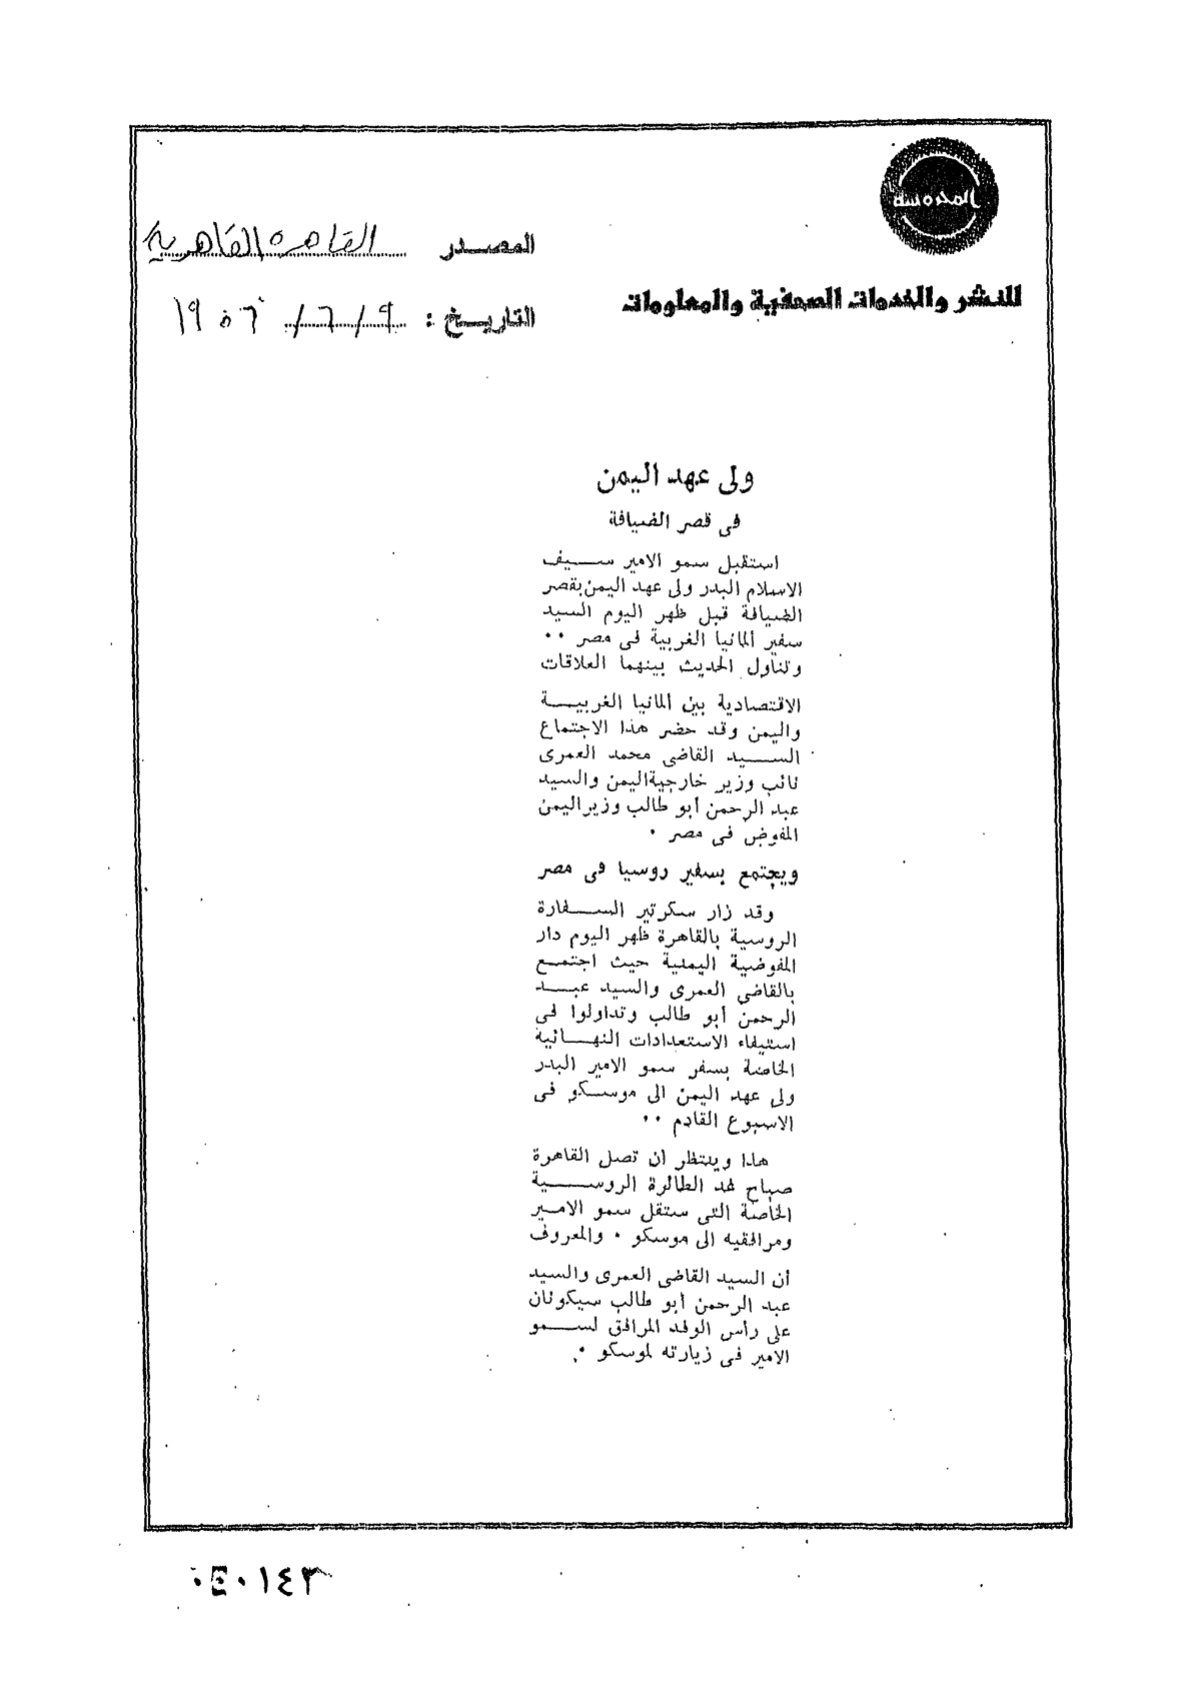 المحروسة
للنشر والخدمات الصحفية والمعلومات
المصدر القاهرة القاهرية
التاريخ : ٩ / ٦ / ١٩٥٦
ولى عهد اليمن
فى قصر الضيافة
استقبل سمو الامير سيف
الاسلام البدر ولى عهد اليمن بقصر
الضيافة قبل ظهر اليوم السيد
سفير المانيا الغربية فى مصر ٠٠
وتناول الحديث بينهما العلاقات
الاقتصادية بين المانيا الغربية
واليمن وقد حضر هذا الاجتماع
السيد القاضى محمد العمرى
نائب وزير خارجية اليمن والسيد
عبد الرحمن أبو طالب وزير اليمن
المفوض فى مصر ٠
ويجتمع بسفير روسيا فى مصر
وقد زار سكرتير السفارة
الروسية بالقاهرة ظهر اليوم دار
المفوضية اليمنية حيث اجتمع
بالقاضى العمرى والسيد عبد
الرحمن أبو طالب وتداولوا فى
استيفاء الاستعدادات النهائية
الخاصة بسفر سمو الامير البدر
ولى عهد اليمن الى موسكو فى
الاسبوع القادم ٠٠
هذا وينتظر ان تصل القاهرة
صباح غد الطائرة الروسية
الخاصة التى ستقل سمو الامير
ومرافقيه الى موسكو ٠ والمعروف
أن السيد القاضى العمرى والسيد
عبد الرحمن أبو طالب سيكونان
على رأس الوفد المرافق لسمو
الامير فى زيارته لموسكو ٠